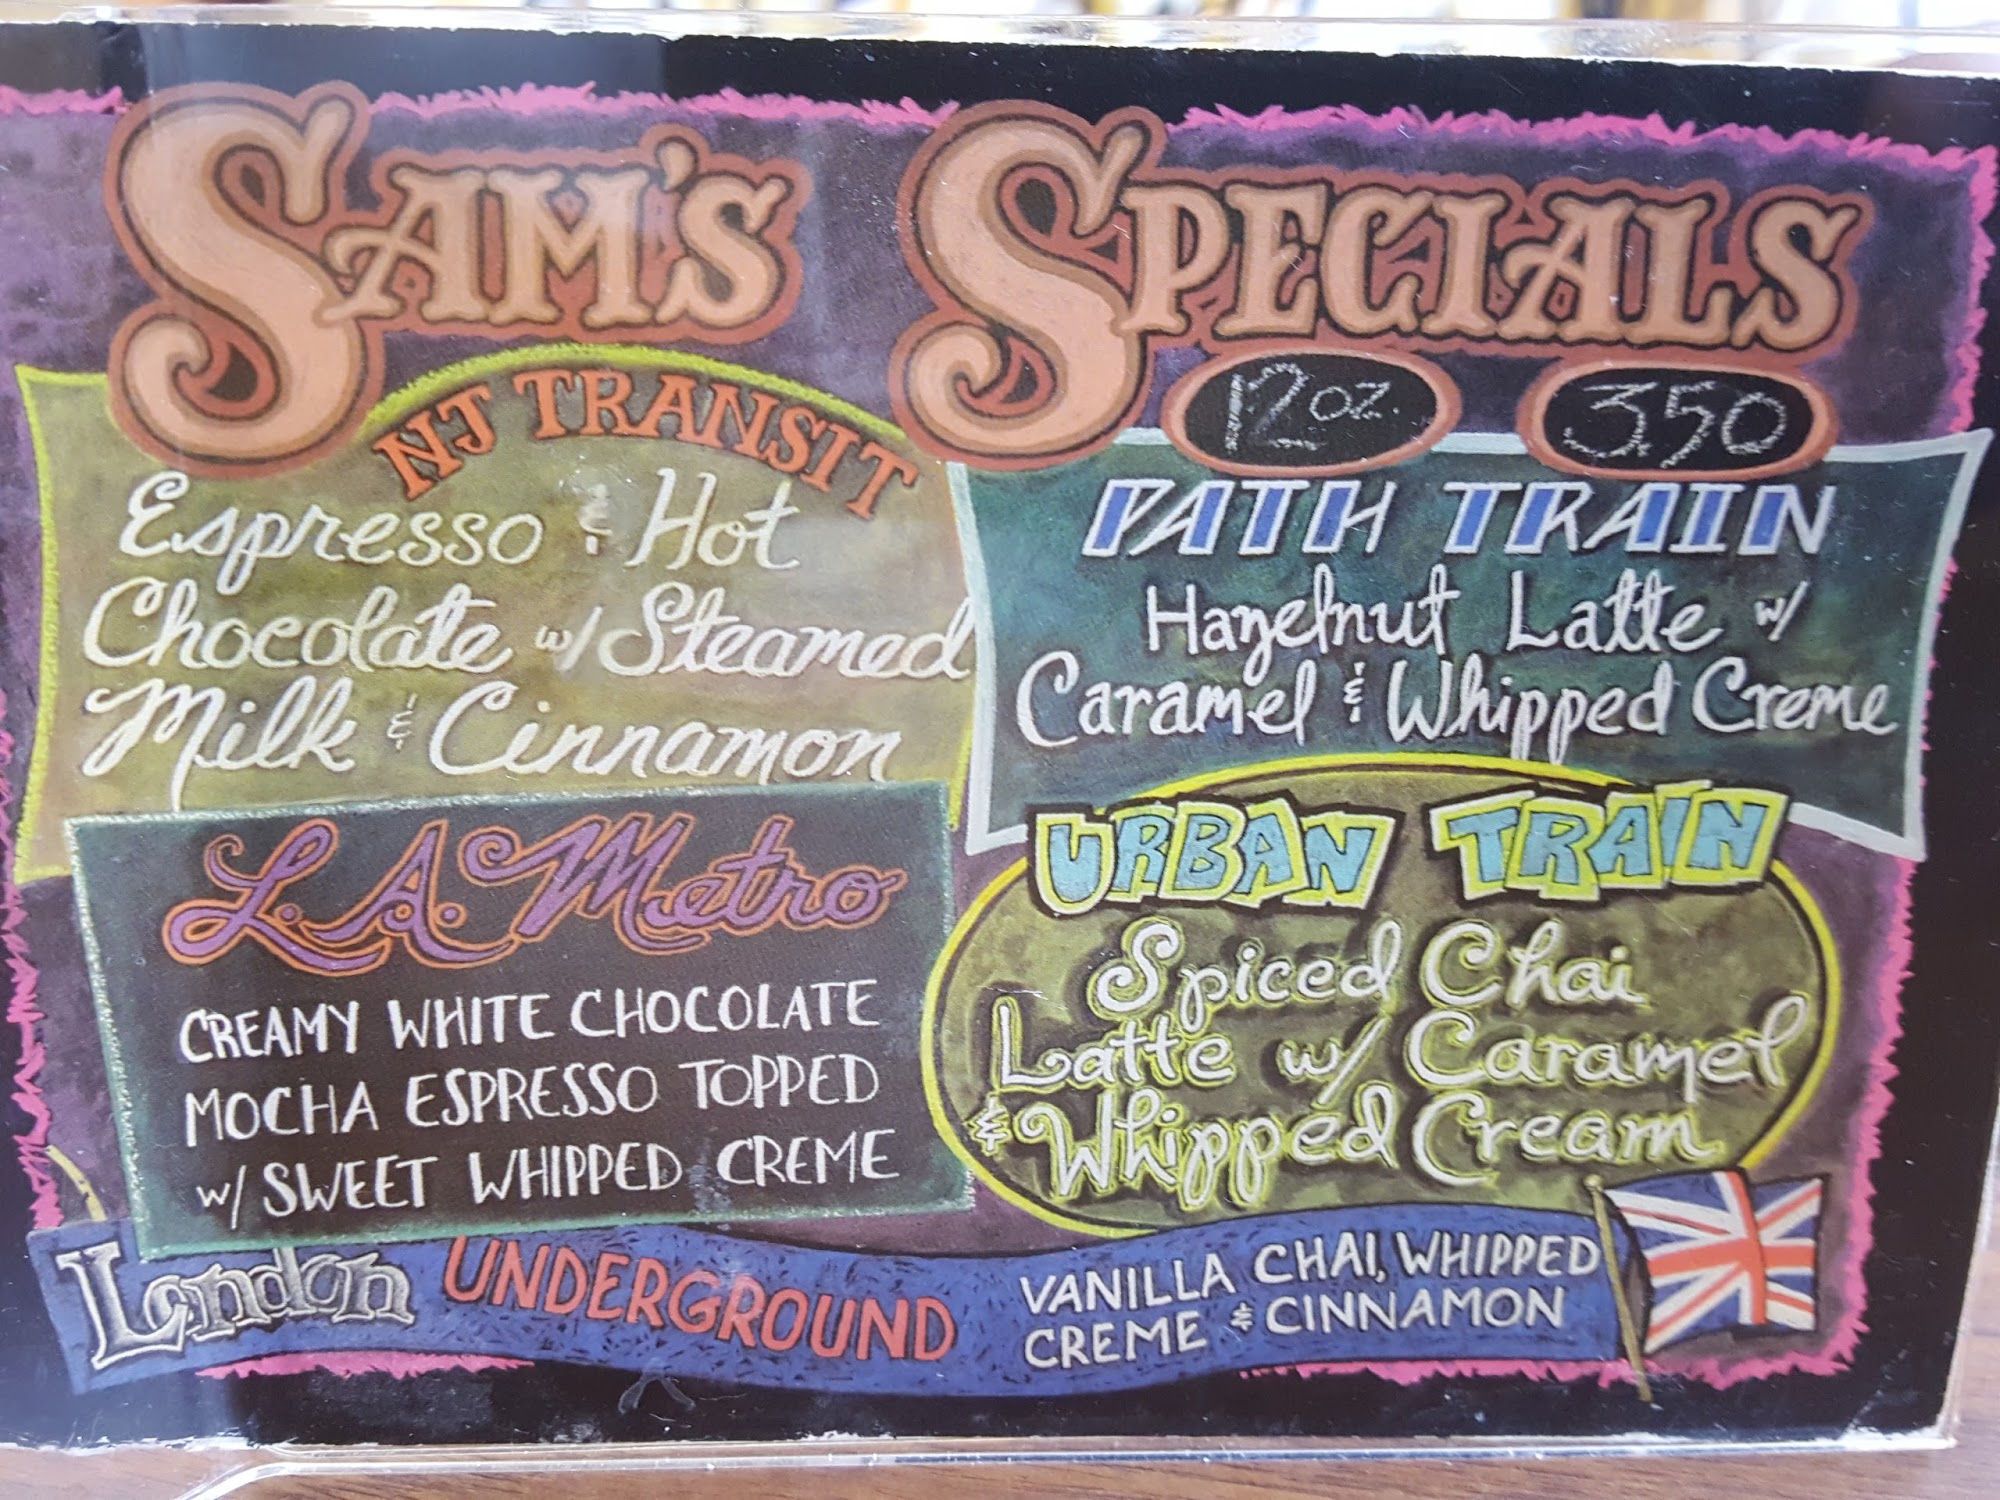 SAM'S SPECIALS
12 oz. 3.50
NJ TRANSIT
Espresso & Hot
Chocolate w/ Steamed
Milk & Cinnamon
PATH TRAIN
Hazelnut Latte w/
Caramel & Whipped Creme
L.A. Metro
CREAMY WHITE CHOCOLATE
MOCHA ESPRESSO TOPPED
w/ SWEET WHIPPED CREME
URBAN TRAIN
Spiced Chai
Latte w/ Caramel
& Whipped Cream
London UNDERGROUND
VANILLA CHAI, WHIPPED
CREME & CINNAMON